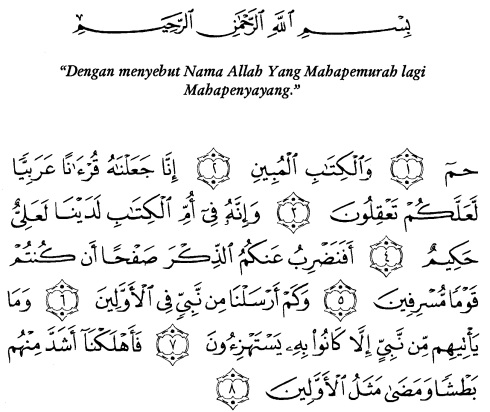 بِسْمِ اللَّهِ الرَّحْمَٰنِ الرَّحِيمِ
“Dengan menyebut Nama Allah Yang Mahapemurah lagi
Mahapenyayang.”
حمٓ ١ وَالْكِتَابِ الْمُبِينِ ٢ إِنَّا جَعَلْنَاهُ قُرْءَانًا عَرَبِيًّا
لَعَلَّكُمْ تَعْقِلُونَ ٣ وَإِنَّهُ فِىٓ أُمِّ الْكِتَابِ لَدَيْنَا لَعَلِىٌّ
حَكِيمٌ ٤ أَفَنَضْرِبُ عَنكُمُ الذِّكْرَ صَفْحًا أَن كُنتُمْ
قَوْمًا مُّسْرِفِينَ ٥ وَكَمْ أَرْسَلْنَا مِن نَّبِىٍّ فِى الْأَوَّلِينَ ٦ وَمَا
يَأْتِيهِم مِّن نَّبِىٍّ إِلَّا كَانُوا۟ بِهِۦ يَسْتَهْزِءُونَ ٧ فَأَهْلَكْنَآ أَشَدَّ مِنْهُم
بَطْشًا وَمَضَىٰ مَثَلُ الْأَوَّلِينَ ٨